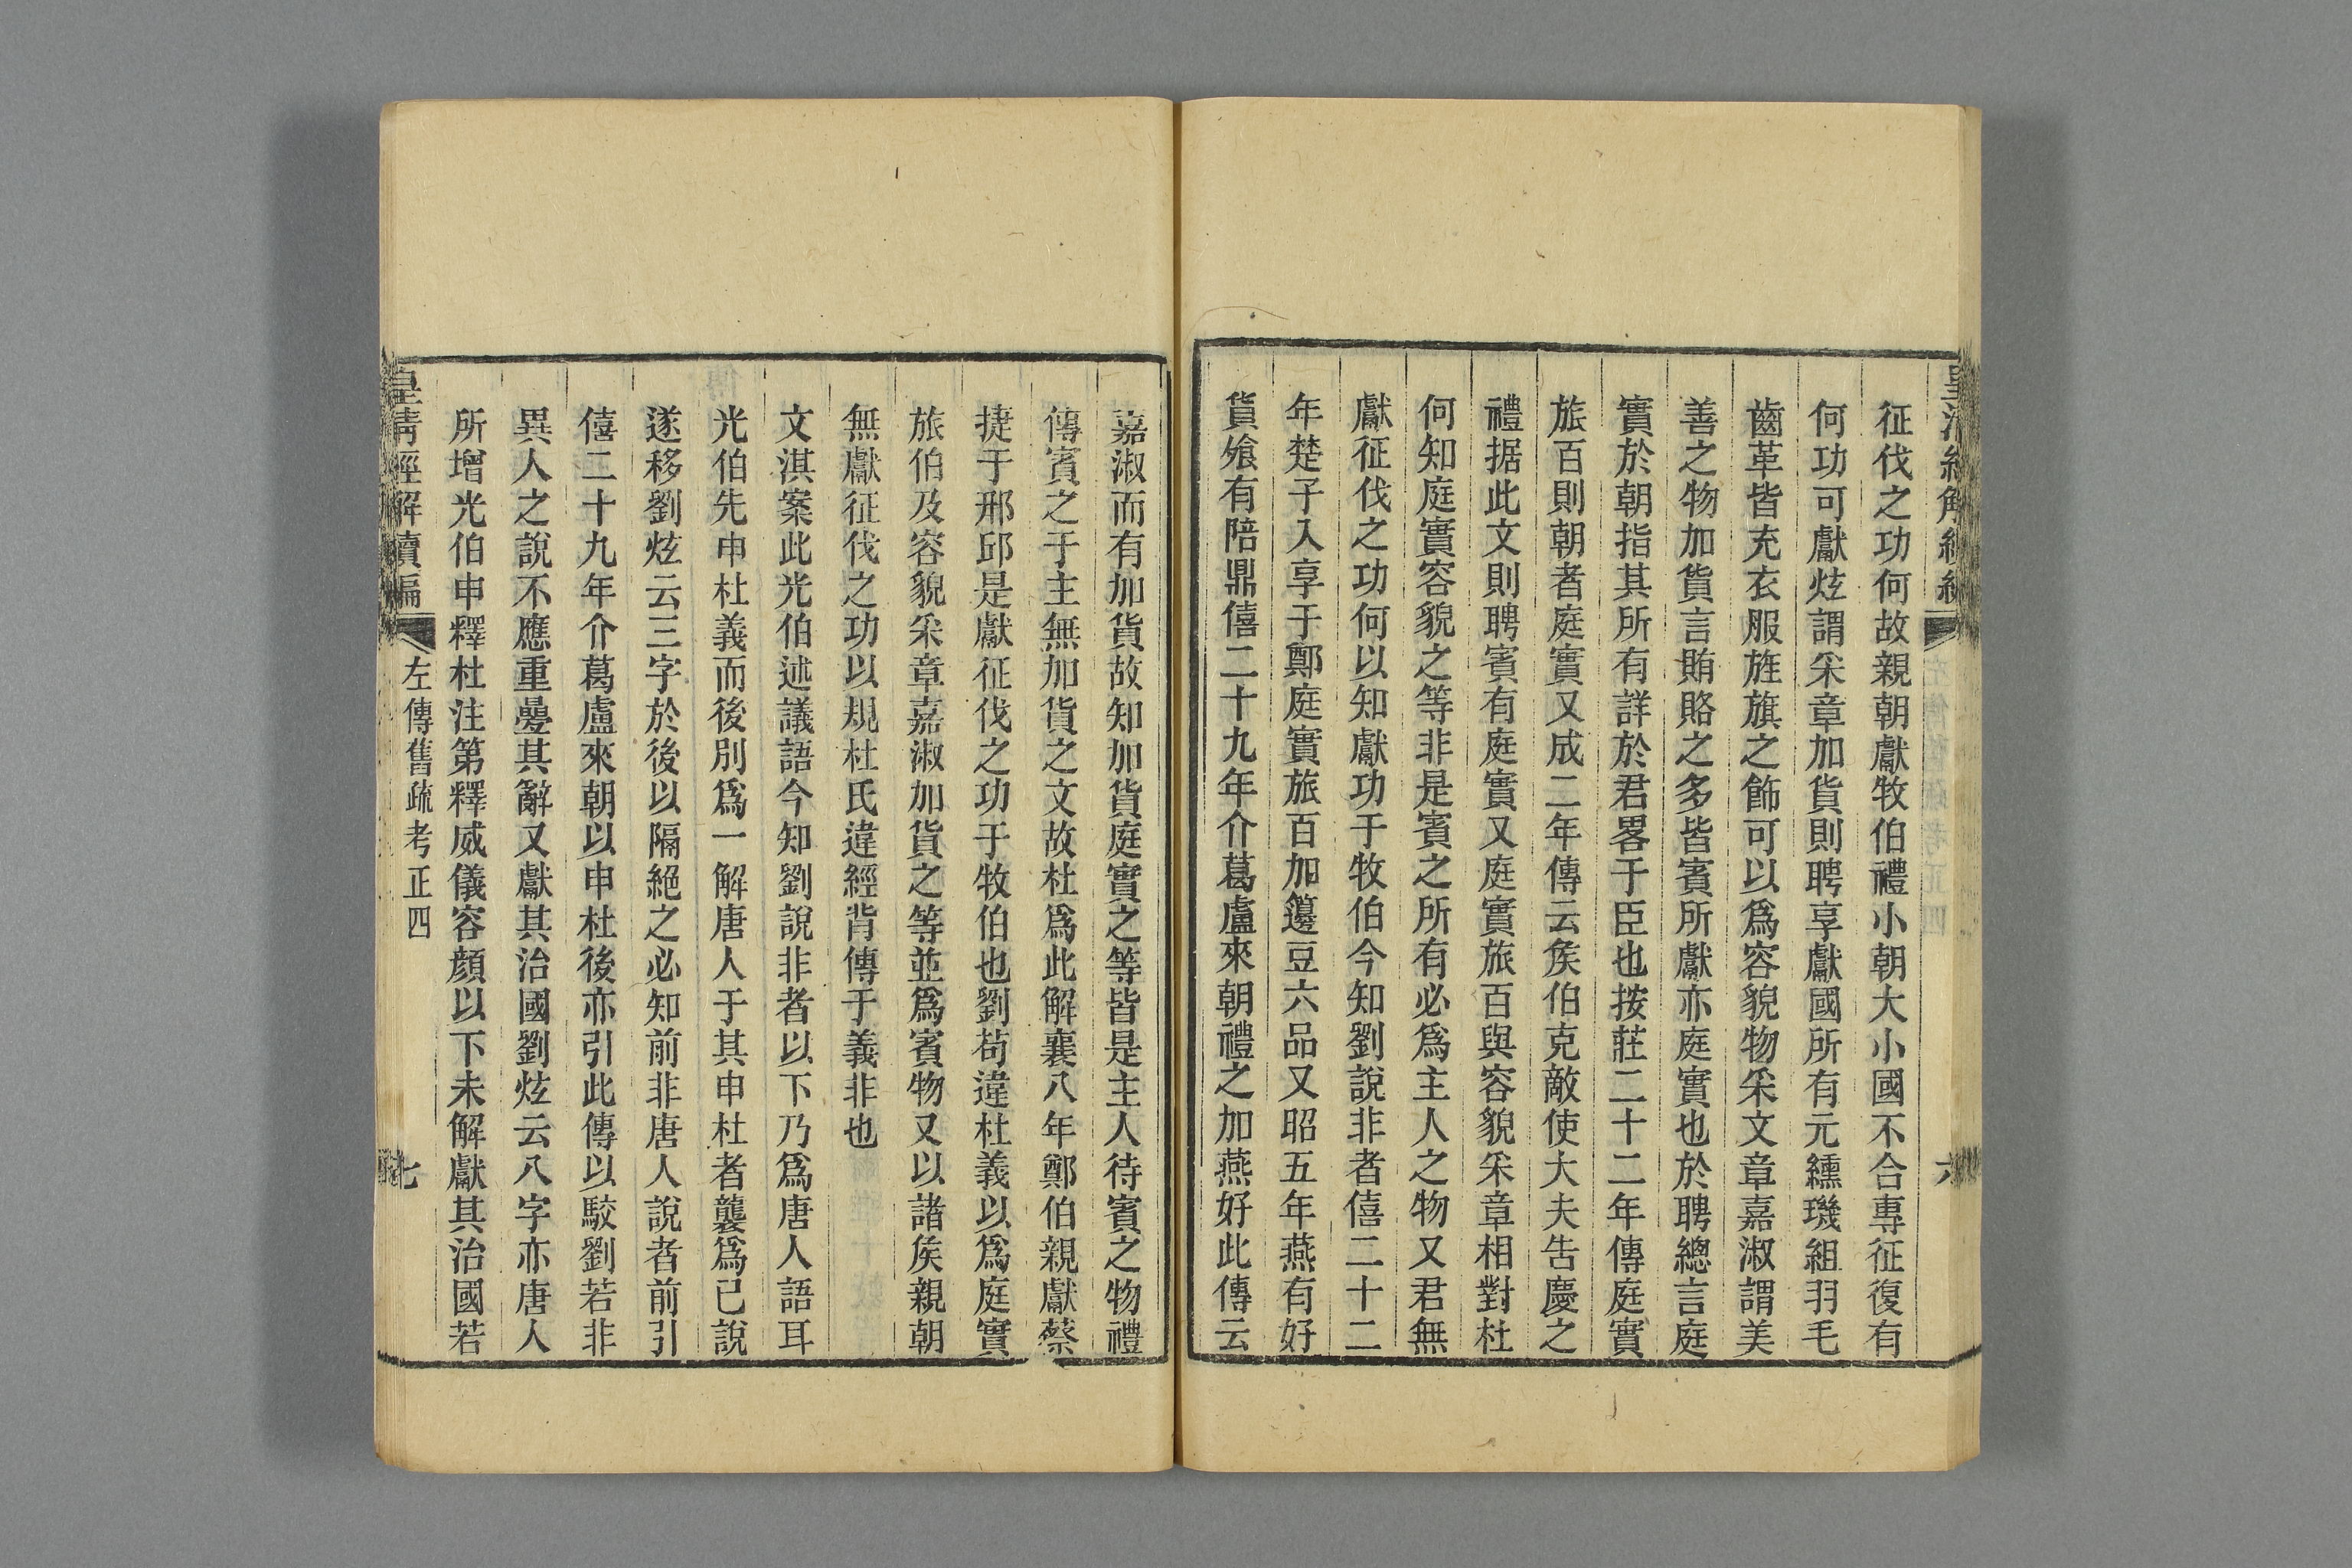 征伐之功何故親朝獻牧伯禮小朝大小國不合專征復有
何功可獻炫謂采章加貨則聘享獻國所有元纁璣組羽毛
齒革皆充衣服旌旗之飾可以爲容貌物采文章嘉淑謂美
善之物加貨言賄賂之多皆賓所獻亦庭實也於聘總言庭
實於朝指其所有詳於君畧于臣也按莊二十二年傳庭實
旅百則朝者庭實又成二年傳云矦伯克敵使大夫告慶之
禮据此文則聘賓有庭實又庭實旅百與容貌采章相對杜
何知庭實容貌之等非是賓之所有必爲主人之物又君無
獻征伐之功何以知獻功于牧伯今知劉說非者僖二十二
年楚子入享于鄭庭實旅百加籩豆六品又昭五年燕有好
貨飧有陪鼎僖二十九年介葛盧來朝禮之加燕好此傳云
嘉淑而有加貨故知加貨庭實之等皆是主人待賓之物禮
傳賓之于主無加貨之文故杜爲此解襄八年鄭伯親獻蔡
捷于邢邱是獻征伐之功于牧伯也劉苟違杜義以爲庭實
旅伯及容貌采章嘉淑加貨之等並爲賓物又以諸矦親朝
無獻征伐之功以規杜氏違經背傳于義非也
文淇案此光伯述議語今知劉說非者以下乃爲唐人語耳
光伯先申杜義而後別爲一解唐人于其申杜者襲爲已說
遂移劉炫云三字於後以隔絕之必知前非唐人說者前引
僖二十九年介葛盧來朝以申杜後亦引此傳以駮劉若非
異人之說不應重曡其辭又獻其治國劉炫云八字亦唐人
所增光伯申釋杜注第釋威儀容顏以下未解獻其治國若
皇清經解續編
左傳舊疏考正四
七